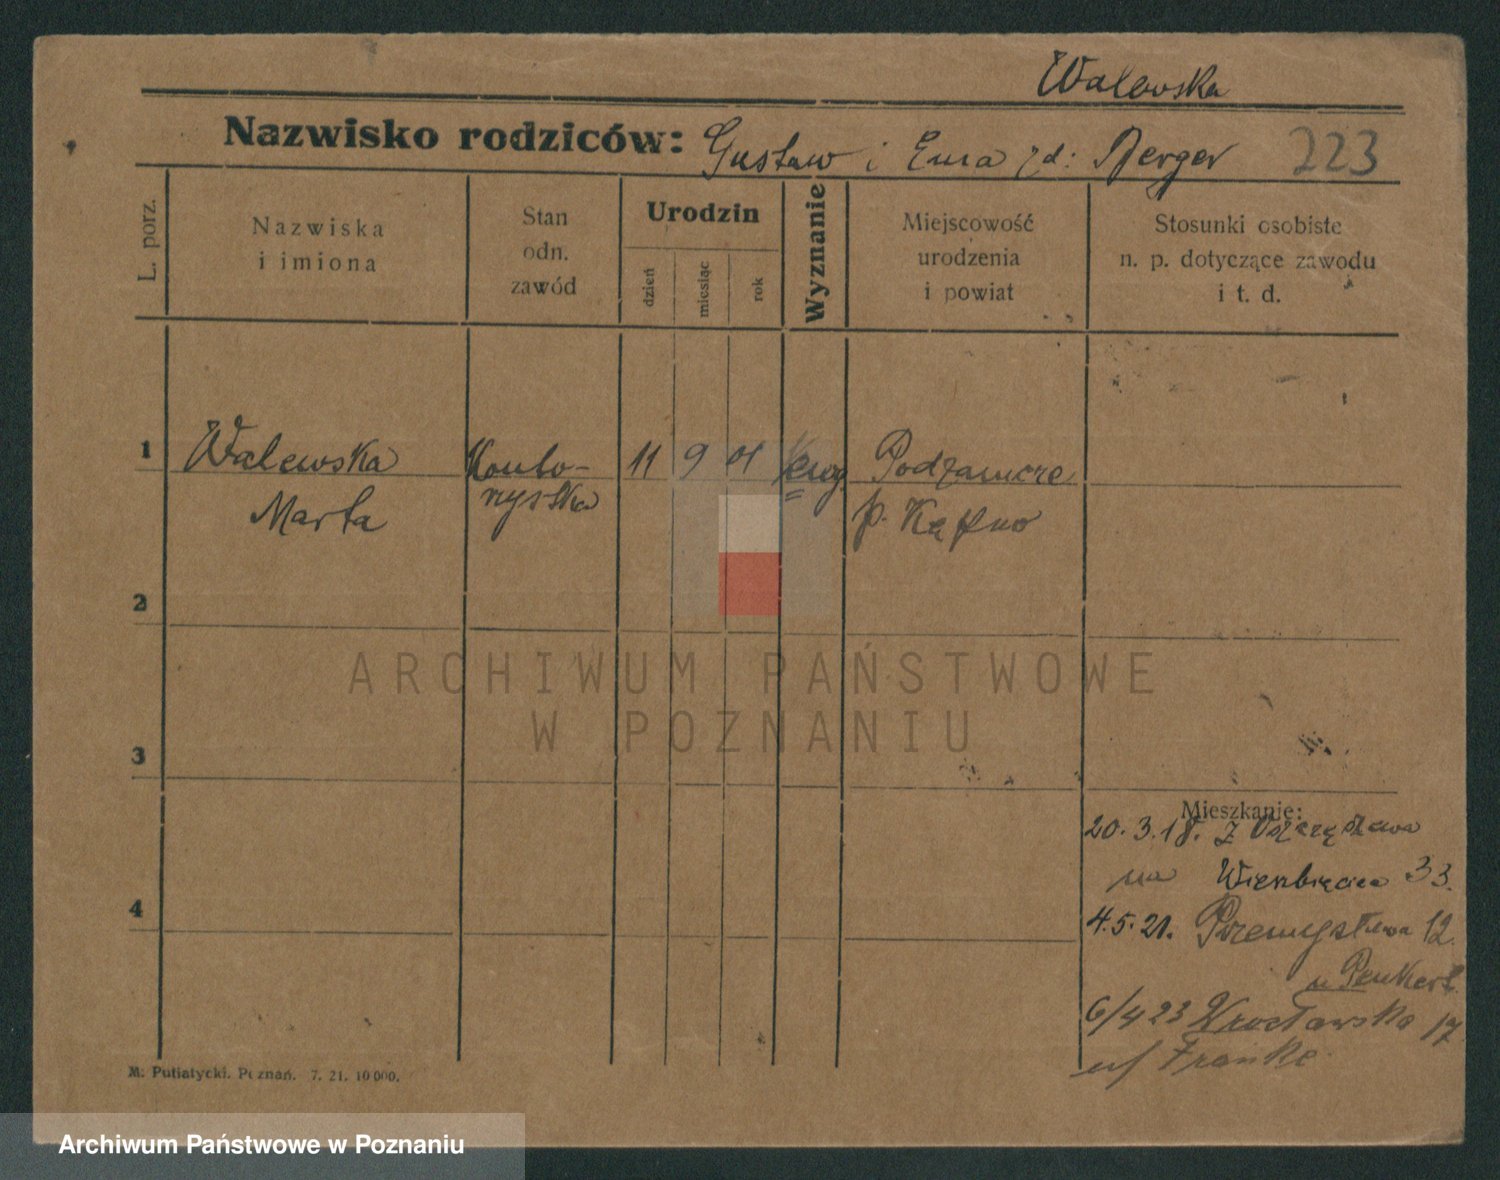 Walewska
Nazwisko rodziców: Gustaw i Ema zd: Berger 223
L. porz.
Nazwiska
i imiona
Stan
odn.
zawód
Urodzin
dzień
miesiąc
rok
Wyznanie
Miejscowość
urodzenia
i powiat
Stosunki osobiste
n. p. dotyczące zawodu
i t. d.
1 Walewska Konto- 11 9 01 ewg. Podzamcze
Marta rzystka p. Kępno
2
ARCHIWUM PAŃSTWOWE
W POZNANIU
3
Mieszkanie:
20.3.18. z
na Wierzbięcice 33.
4
4.5.21. Przemysłowa 12.
u Penkert
6/4 23 Wrocławska 17
u/ Franke
M. Putiatycki. Poznań. 7. 21. 10 000.
Archiwum Państwowe w Poznaniu